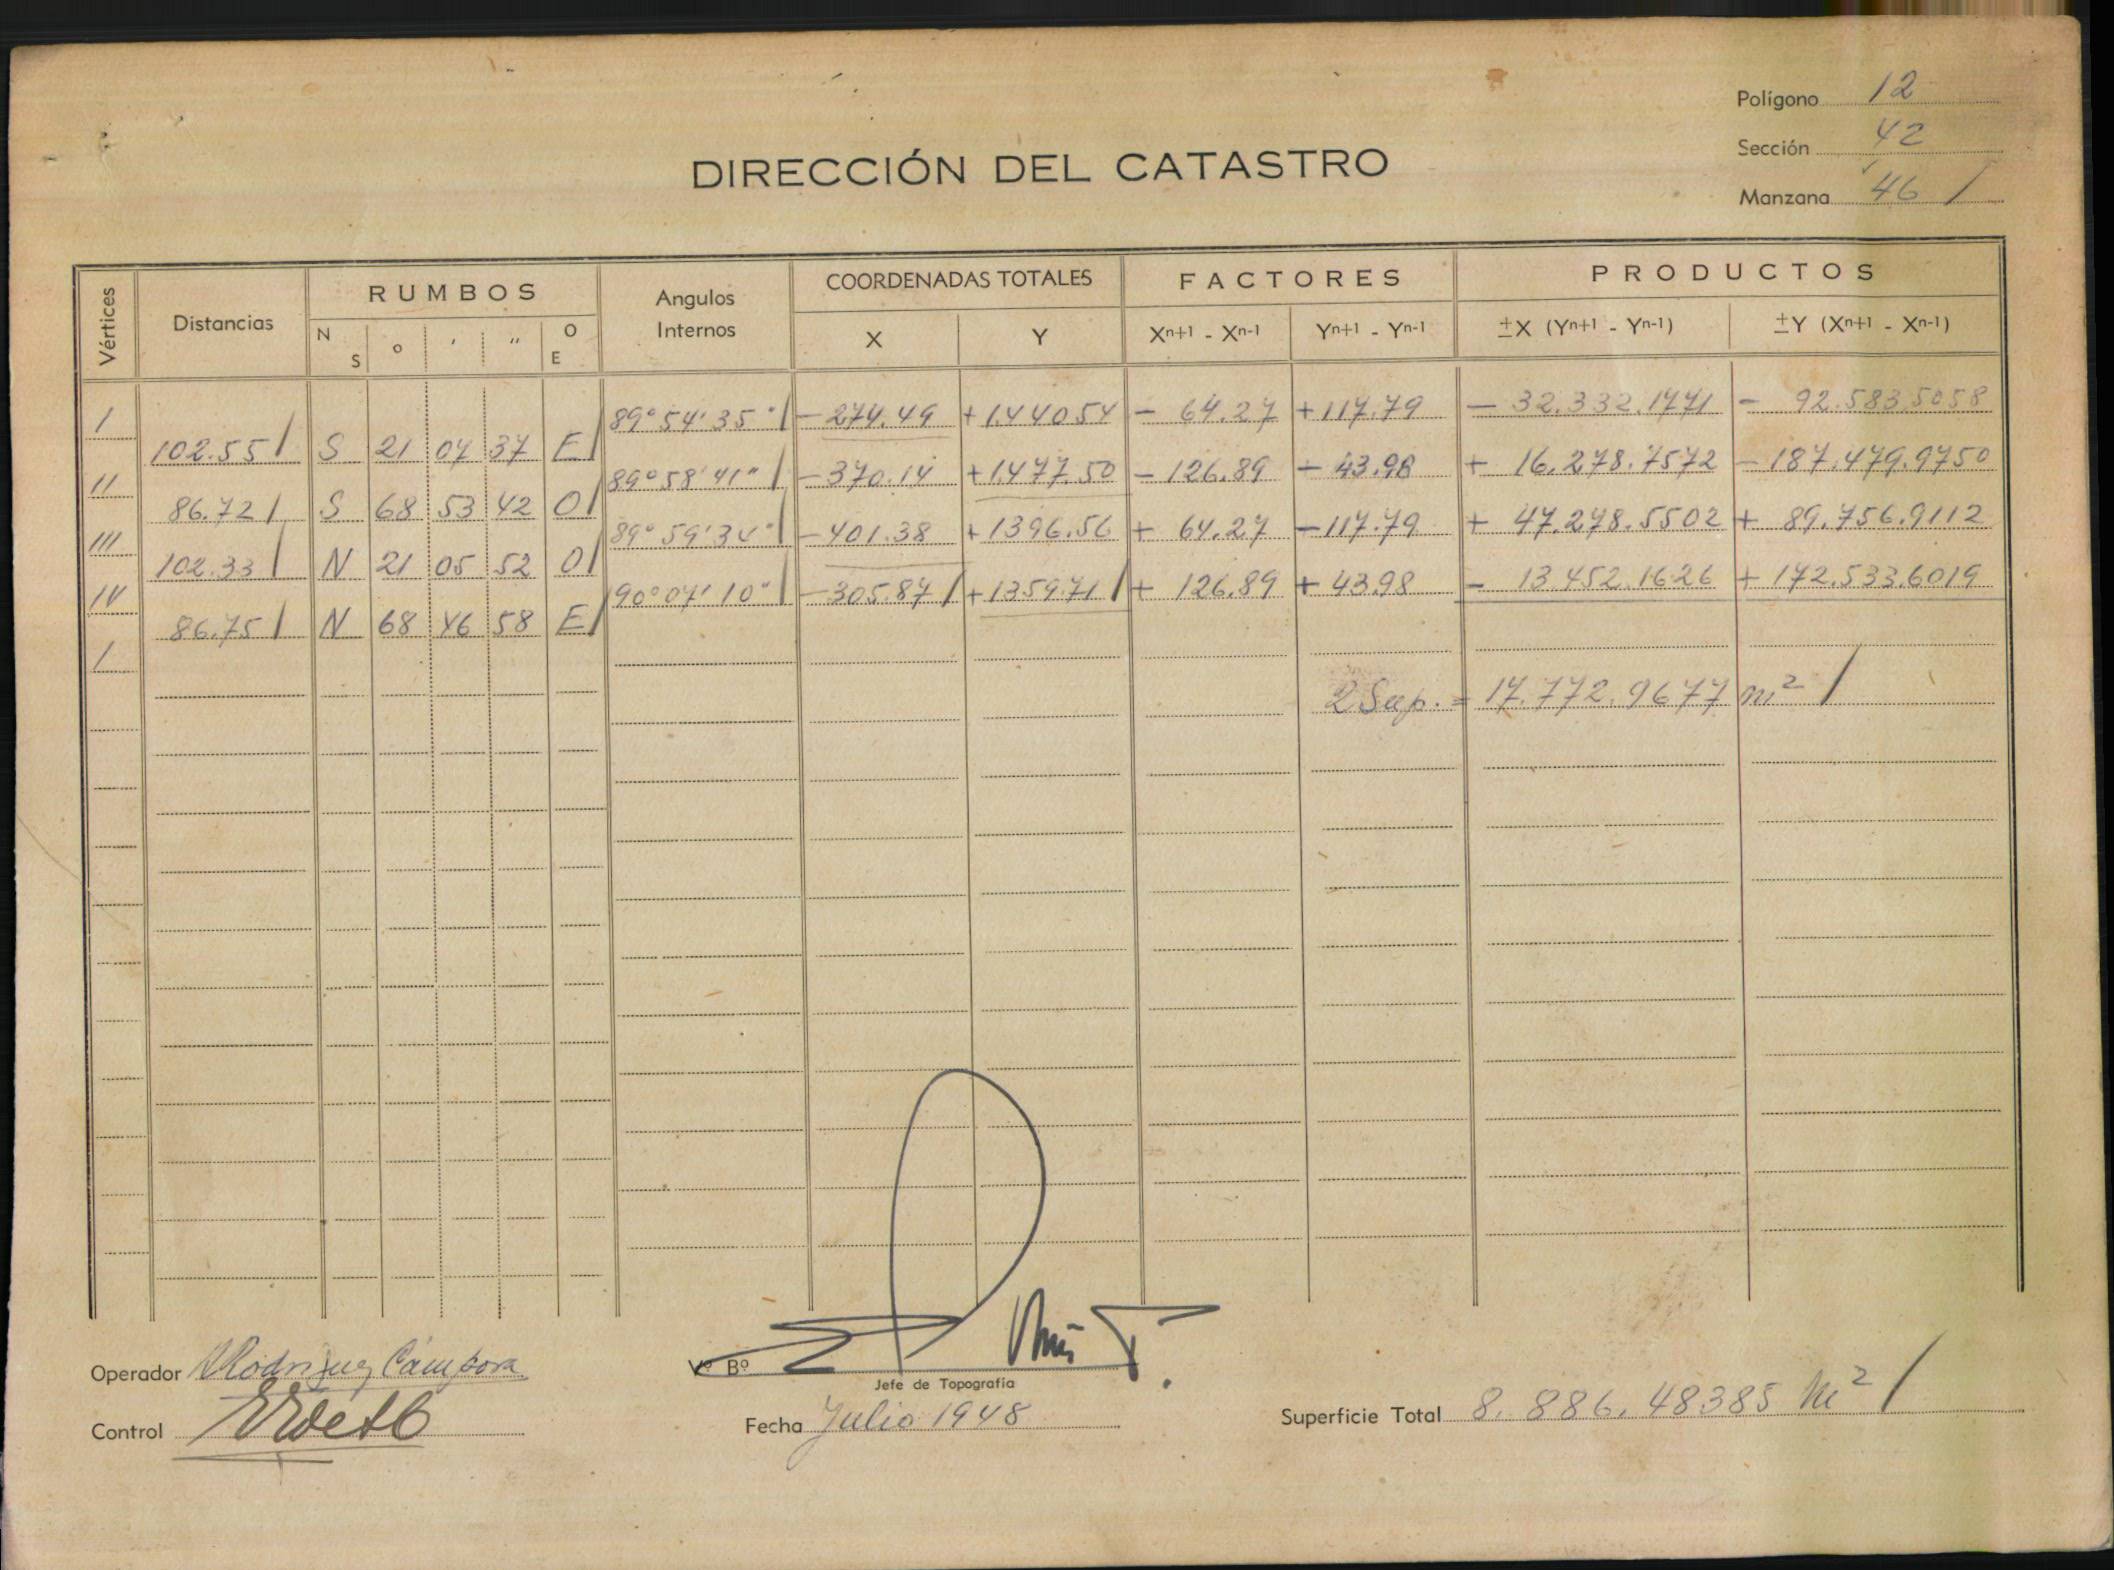 Polígono 12
Sección 42
Manzana 46 /
DIRECCIÓN DEL CATASTRO
Vértices Distancias RUMBOS Angulos Internos COORDENADAS TOTALES FACTORES PRODUCTOS
N S o ' " O E X Y Xn+1 - Xn-1 Yn+1 - Yn-1 ±X (Yn+1 - Yn-1) ±Y (Xn+1 - Xn-1)
I 89° 54' 35" / - 274.49 + 1.440.54 - 64.27 + 117.79 - 32.332.1771 - 92.583.5058
102.55 / S 21 07 37 E /
II 89° 58' 41" / - 370.14 + 1.477.50 - 126.89 - 43.98 + 16.278.7572 - 187.479.9750
86.72 / S 68 53 42 O /
III 89° 59' 34" / - 401.38 + 1396.56 + 64.27 - 117.79 + 47.278.5502 + 89.756.9112
102.33 / N 21 05 52 O /
IV 90° 07' 10" / - 305.87 / + 1359.71 / + 126.89 + 43.98 - 13.452.1626 + 172.533.6019
86.75 / N 68 46 58 E /
I
2 Sup. = 17.772.9677 m² /
Operador Rodriguez Cámpora
Vº Bº
Jefe de Topografia
Control
Fecha Julio 1948
Superficie Total 8.886.48385 m² /